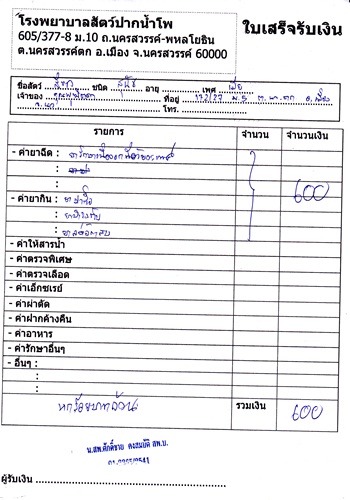 โรงพยาบาลสัตว์ปากน้ำโพ
605/377-8 ม.10 ถ.นครสวรรค์-พหลโยธิน
ต.นครสวรรค์ตก อ.เมือง จ.นครสวรรค์ 60000
ใบเสร็จรับเงิน
ชื่อสัตว์ ชนิด สุนัข อายุ เพศ เมีย
เจ้าของ ที่อยู่ 132/27 ม.5
โทร.
รายการ จำนวน จำนวนเงิน
- ค่ายาฉีด :
:
600
- ค่ายากิน :
:
:
- ค่าให้สารน้ำ
- ค่าตรวจพิเศษ
- ค่าตรวจเลือด
- ค่าเอ็กซเรย์
- ค่าผ่าตัด
- ค่าฝากค้างคืน
- ค่าอาหาร
- ค่ารักษาอื่นๆ
- อื่นๆ :
:
:
หกร้อยบาทถ้วน รวมเงิน 600
น.สพ.ศักดิ์ชาย คงสมบัติ สพ.บ.
ผู้รับเงิน